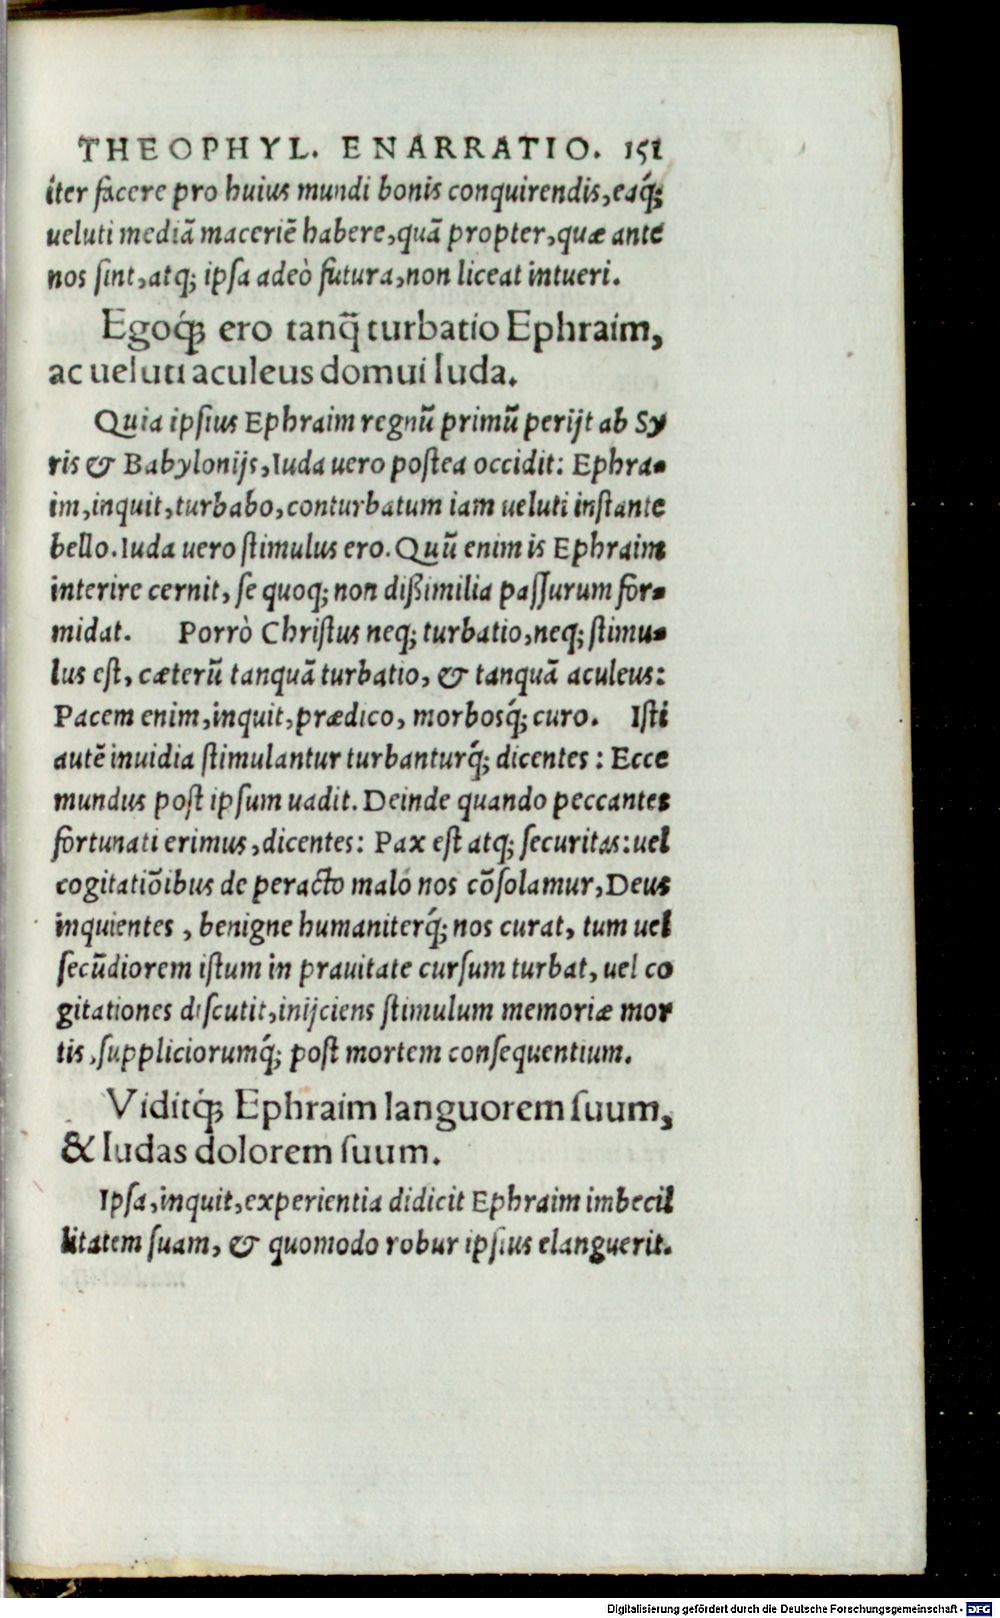 THEOPHYL. ENARRATIO. 151
iter facere pro huius mundi bonis conquirendis, eaq́;
ueluti mediā maceriē habere, quā propter, quæ ante
nos sint, atq; ipsa adeò futura, non liceat intueri.
Egoq́; ero tanq̃ turbatio Ephraim,
ac ueluti aculeus domui Iuda.
Quia ipsius Ephraim regnū primū perijt ab Sy
ris & Babylonijs, Iuda uero postea occidit: Ephra-
im, inquit, turbabo, conturbatum iam ueluti instante
bello. Iuda uero stimulus ero. Quū enim is Ephraim
interire cernit, se quoq; non dißimilia passurum for-
midat. Porrò Christus neq; turbatio, neq; stimu-
lus est, cæterū tanquā turbatio, & tanquā aculeus:
Pacem enim, inquit, prædico, morbosq́; curo. Isti
autē inuidia stimulantur turbanturq́; dicentes: Ecce
mundus post ipsum uadit. Deinde quando peccantes
fortunati erimus, dicentes: Pax est atq; securitas: uel
cogitatiōibus de peracto malo nos cōsolamur, Deus
inquientes, benigne humaniterq́; nos curat, tum uel
secūdiorem istum in prauitate cursum turbat, uel co
gitationes discutit, inijciens stimulum memoriæ mor
tis, suppliciorumq́; post mortem consequentium.
Viditq́; Ephraim languorem suum,
& Iudas dolorem suum.
Ipsa, inquit, experientia didicit Ephraim imbecil
litatem suam, & quomodo robur ipsius elanguerit.
Digitalisierung gefördert durch die Deutsche Forschungsgemeinschaft - DFG